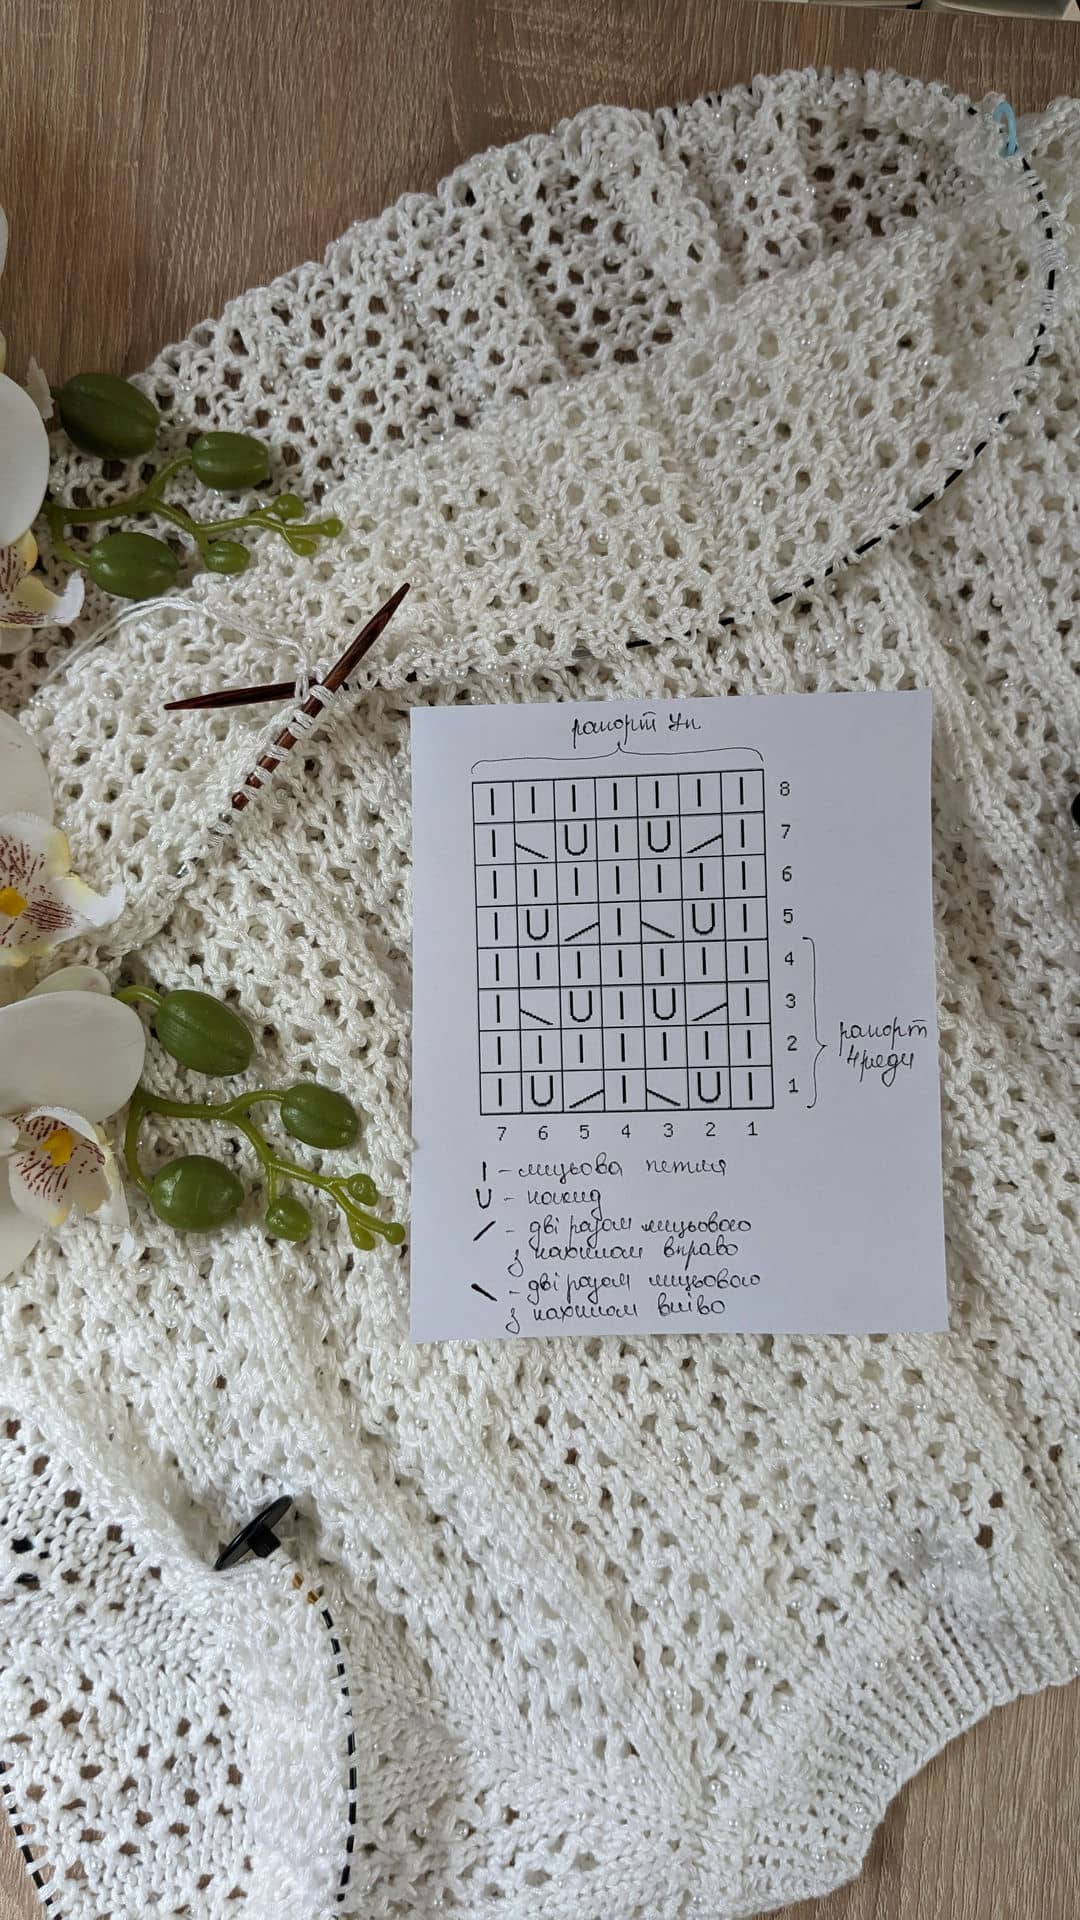 рапорт 7п
I I I I I I I 8
I \ U I U / I 7
I I I I I I I 6
I U / I \ U I 5
I I I I I I I 4
I \ U I U / I 3
I I I I I I I 2
I U / I \ U I 1
рапорт
4 ряди
7 6 5 4 3 2 1
I - лицьова петля
U - накид
/ - дві разом лицьовою
з нахилом вправо
\ - дві разом лицьовою
з нахилом вліво